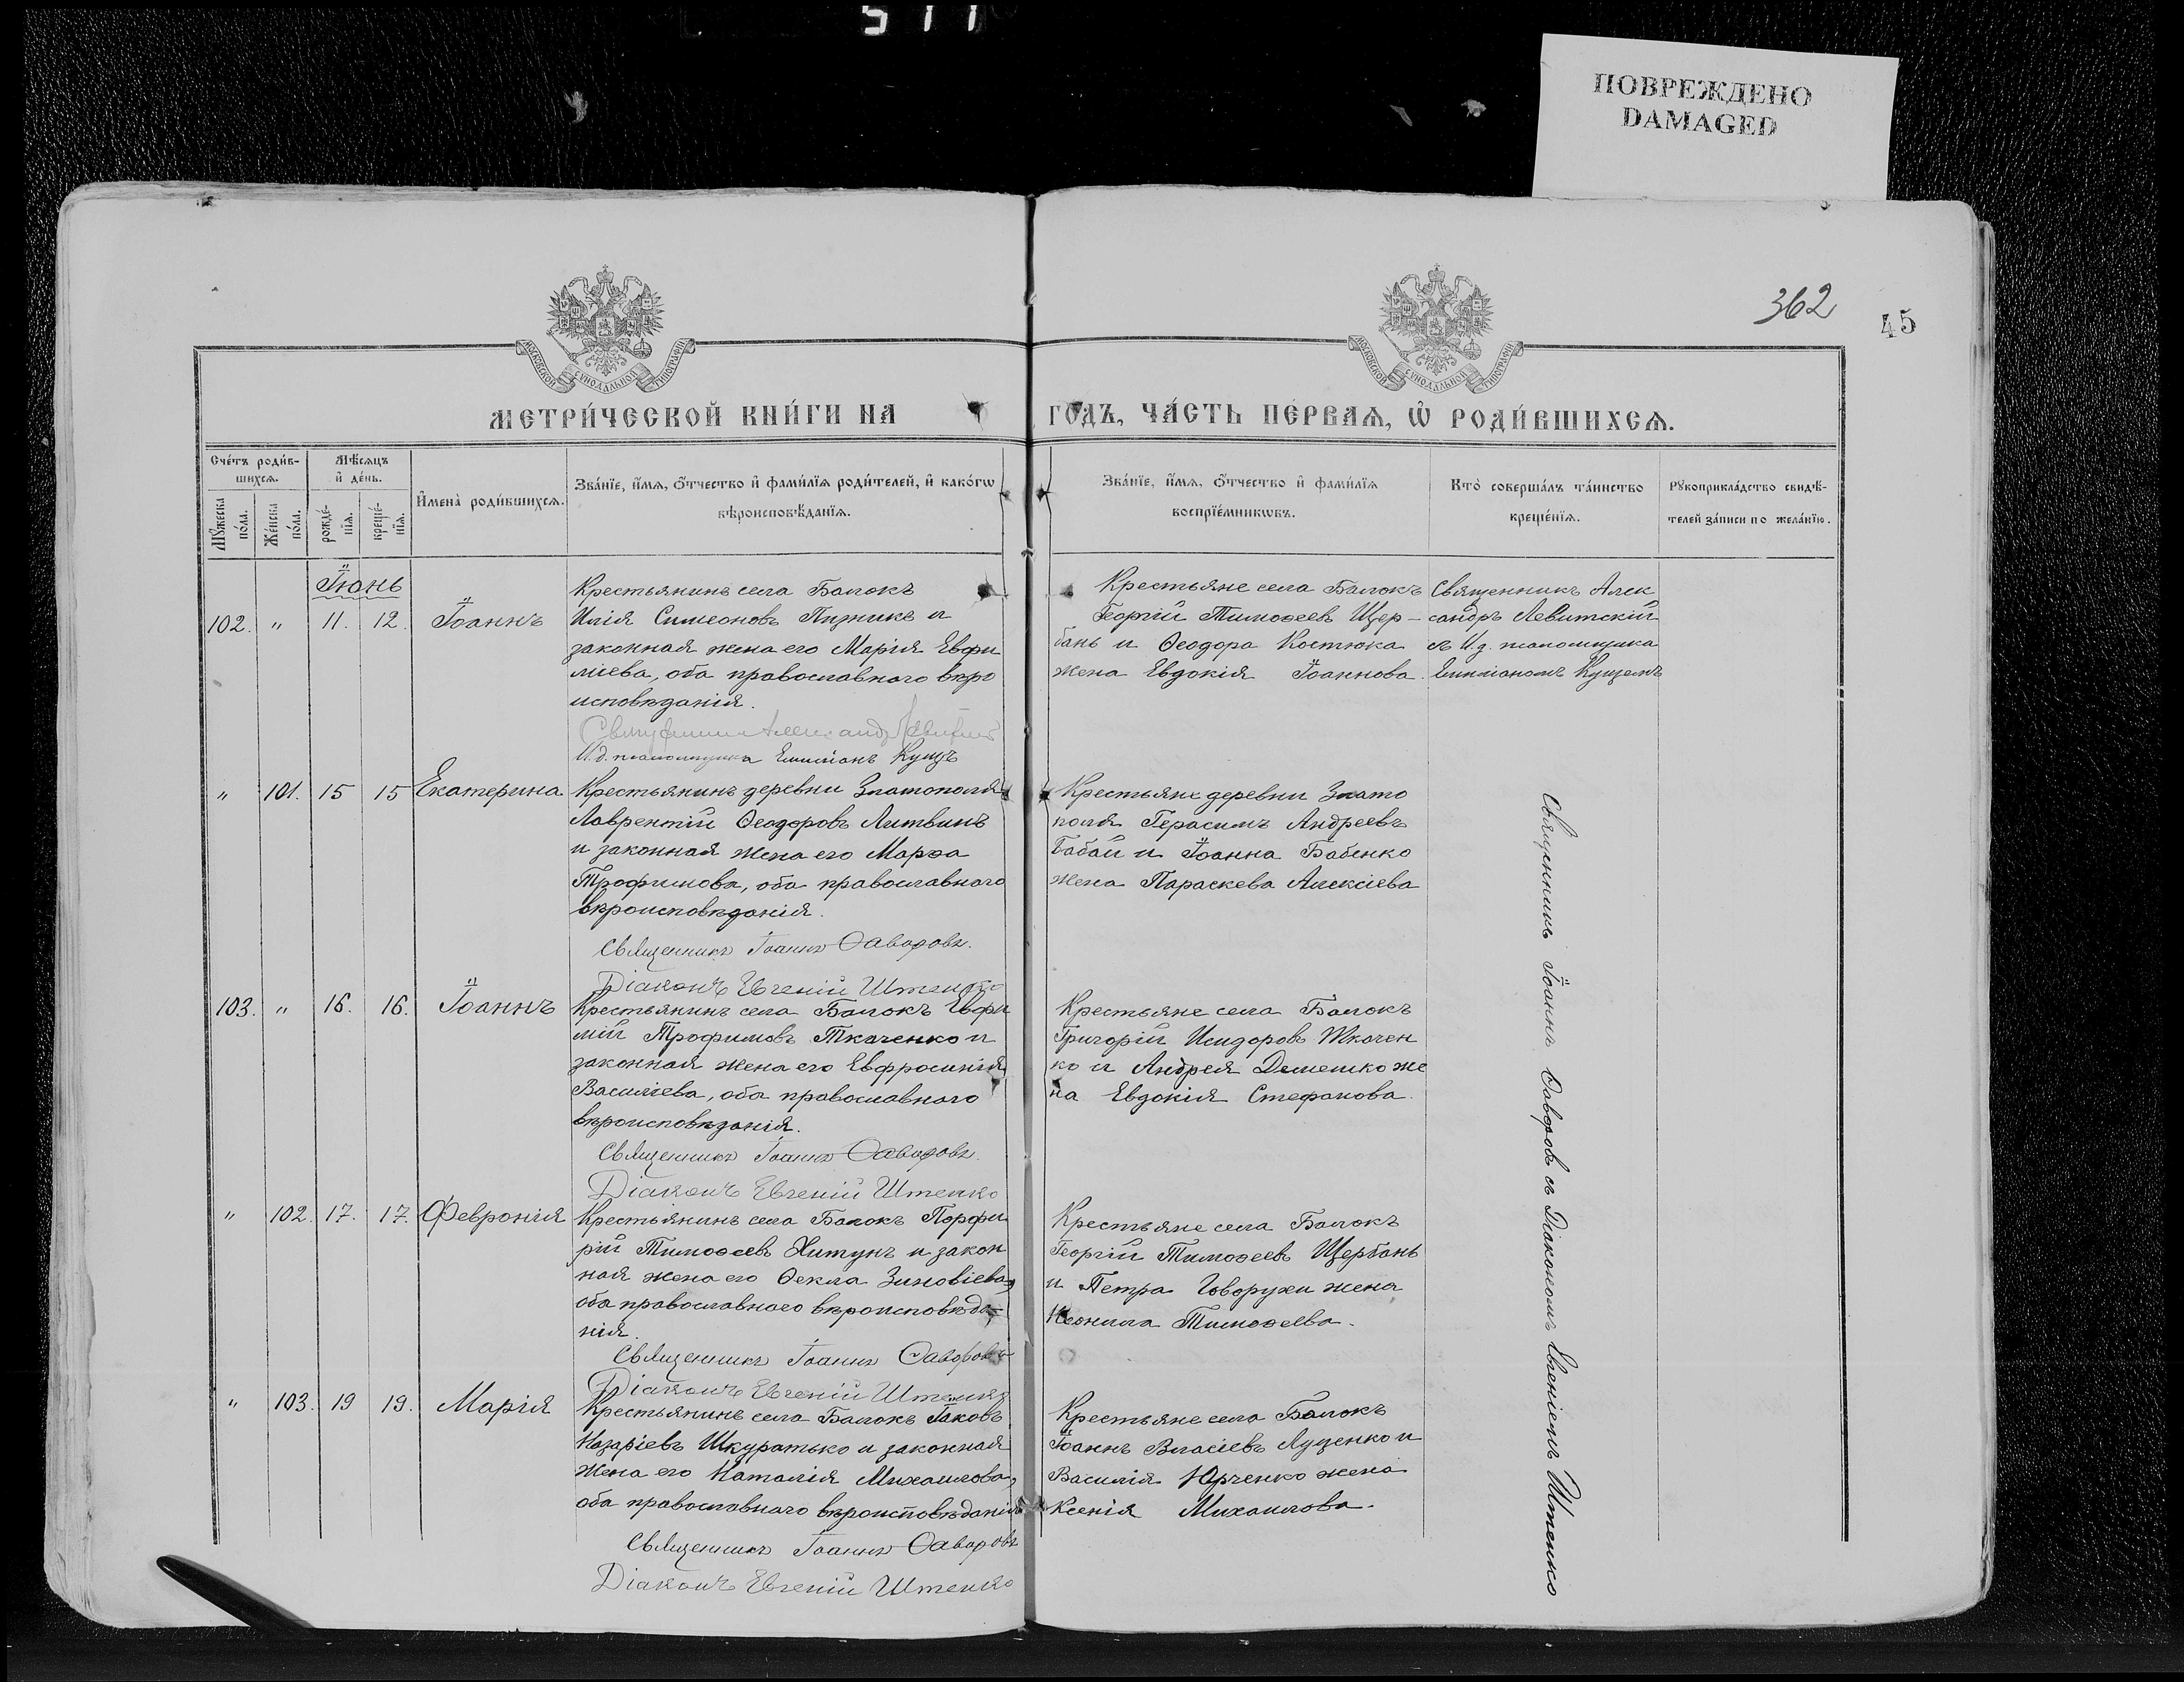 577
ПОВРЕЖДЕНО
DAMAGED
362
45
МОСКОВСКОЙ СѴНОДАЛЬНОЙ ТИПОГРАФІИ
МОСКОВСКОЙ СѴНОДАЛЬНОЙ ТИПОГРАФІИ
МЕТРИ́ЧЕСКОЙ КНИ́ГИ НА ГОДЪ, ЧА́СТЬ ПЕ́РВАѦ, Ѽ РОДИ́ВШИХСѦ.
Сче́тъ роди́в-
шихсѧ.
Мꙋ́жеска по́ла.
Же́нска по́ла.
Мѣ́сѧцъ
и҆ де́нь.
рожде́-нїѧ.
креще́-нїѧ.
И҆мена̀ роди́вшихсѧ.
Зва́нїе, и҆́мѧ, ѻ҆́тчество и҆ фами́лїѧ роди́телей, и҆ како́гѡ
вѣроисповѣ́данїѧ.
Зва́нїе, и҆́мѧ, ѻ҆́тчество и҆ фами́лїѧ
воспрїе́мникѡвъ.
Кто̀ соверша́лъ та́инство
креще́нїѧ.
Рꙋкоприкла́дство свидѣ́-
телей за́писи по жела́нїю.
Іюнь
102. " 11. 12. Іоаннъ
Крестьянинъ села Балокъ
Илія Симеоновъ Пизникъ и
законная жена его Марія Евфи
міева, оба православнаго вѣро
исповѣданія.
Священникъ Александръ Левитскій
И.д. псаломщика Емиліанъ Кущъ
Крестьяне села Балокъ
Георгій Тимоѳеевъ Щер-
бань и Ѳеодора Костюка
жена Евдокія Іоаннова.
Священникъ Алек
сандръ Левитскій
съ И.д. псаломщика
Емиліаномъ Кущемъ
" 101. 15 15 Екатерина
Крестьянинъ деревни Златополя
Лаврентій Ѳеодоровъ Литвинъ
и законная жена его Марѳа
Трофимова, оба православнаго
вѣроисповѣданія.
Священникъ Іоаннъ Ѳаворовъ.
Діаконъ Евгеній Штепко
Крестьяне деревни Злато
поля Герасимъ Андреевъ
Бабай и Іоанна Бабенко
жена Параскева Алексіева
Священникъ Іоаннъ Ѳаворовъ съ Діакономъ Евгеніемъ Штепко
103. " 16. 16. Іоаннъ
Крестьянинъ села Балокъ Евфи
мій Трофимовъ Ткаченко и
законная жена его Евфросинія
Василіева, оба православнаго
вѣроисповѣданія.
Священникъ Іоаннъ Ѳаворовъ.
Діаконъ Евгеній Штепко
Крестьяне села Балокъ
Григорій Исидоровъ Ткачен
ко и Андрея Демешко же
на Евдокія Стефанова.
" 102. 17. 17. Февронія
Крестьянинъ села Балокъ Порфи
рій Тимоѳеевъ Хитунъ и закон
ная жена его Ѳекла Зиновіева,
оба православнаго вѣроисповѣда=
нія.
Священникъ Іоаннъ Ѳаворовъ
Діаконъ Евгеній Штепко
Крестьяне села Балокъ
Георгій Тимоѳеевъ Щербань
и Петра Говорухи жена
Неонила Тимоѳеева.
" 103. 19 19. Марія
Крестьянинъ села Балокъ Іаковъ
Назаріевъ Шкуратько и законная
жена его Наталія Михаилова,
оба православнаго вѣроисповѣданія
Священникъ Іоаннъ Ѳаворовъ
Діаконъ Евгеній Штепко
Крестьяне села Балокъ
Іоаннъ Власіевъ Луценко и
Василія Юрченко жена
Ксенія Михаилова.